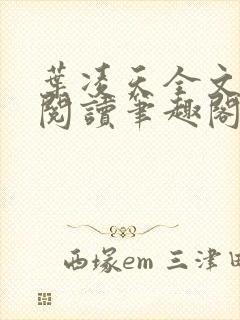 葉凌天全文
閱讀筆趣閣
西塚em 三津田